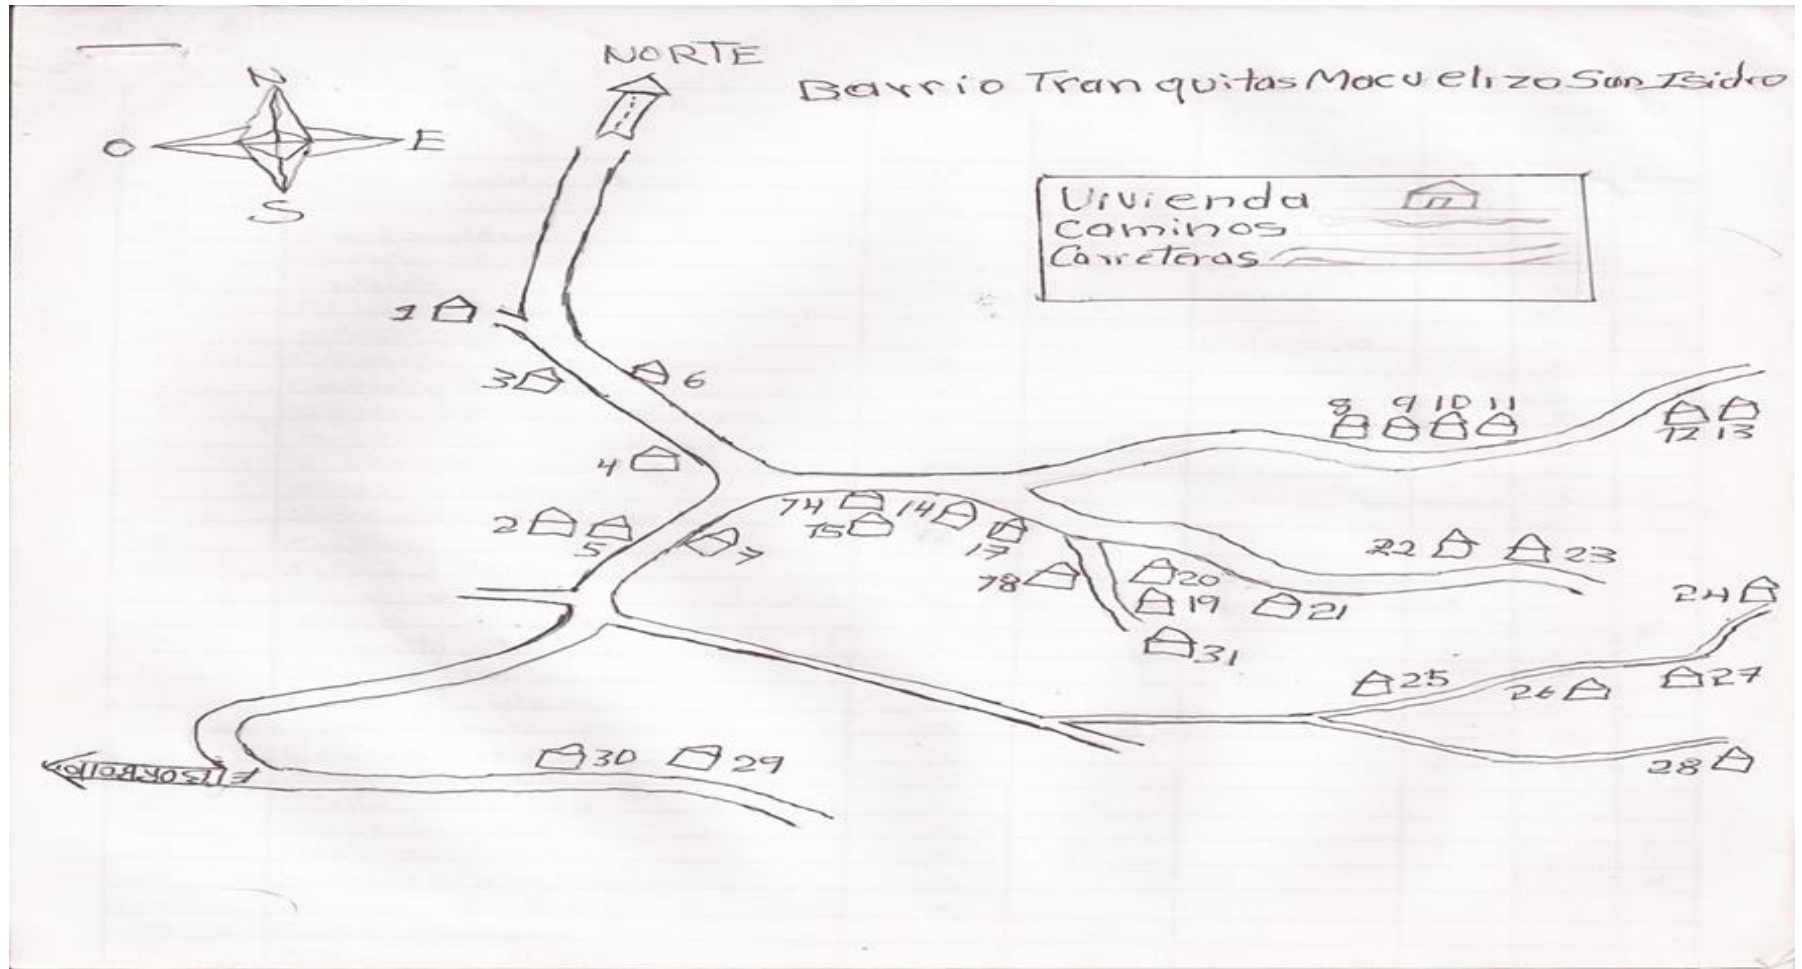 NORTE
Barrio Tranquitas Macuelizo San Isidro
N
O
E
S
Vivienda
Caminos
Carreteras
1
3
6
4
8
9
10
11
12
13
2
5
7
74
75
14
17
78
20
19
21
31
22
23
24
25
26
27
28
30
29